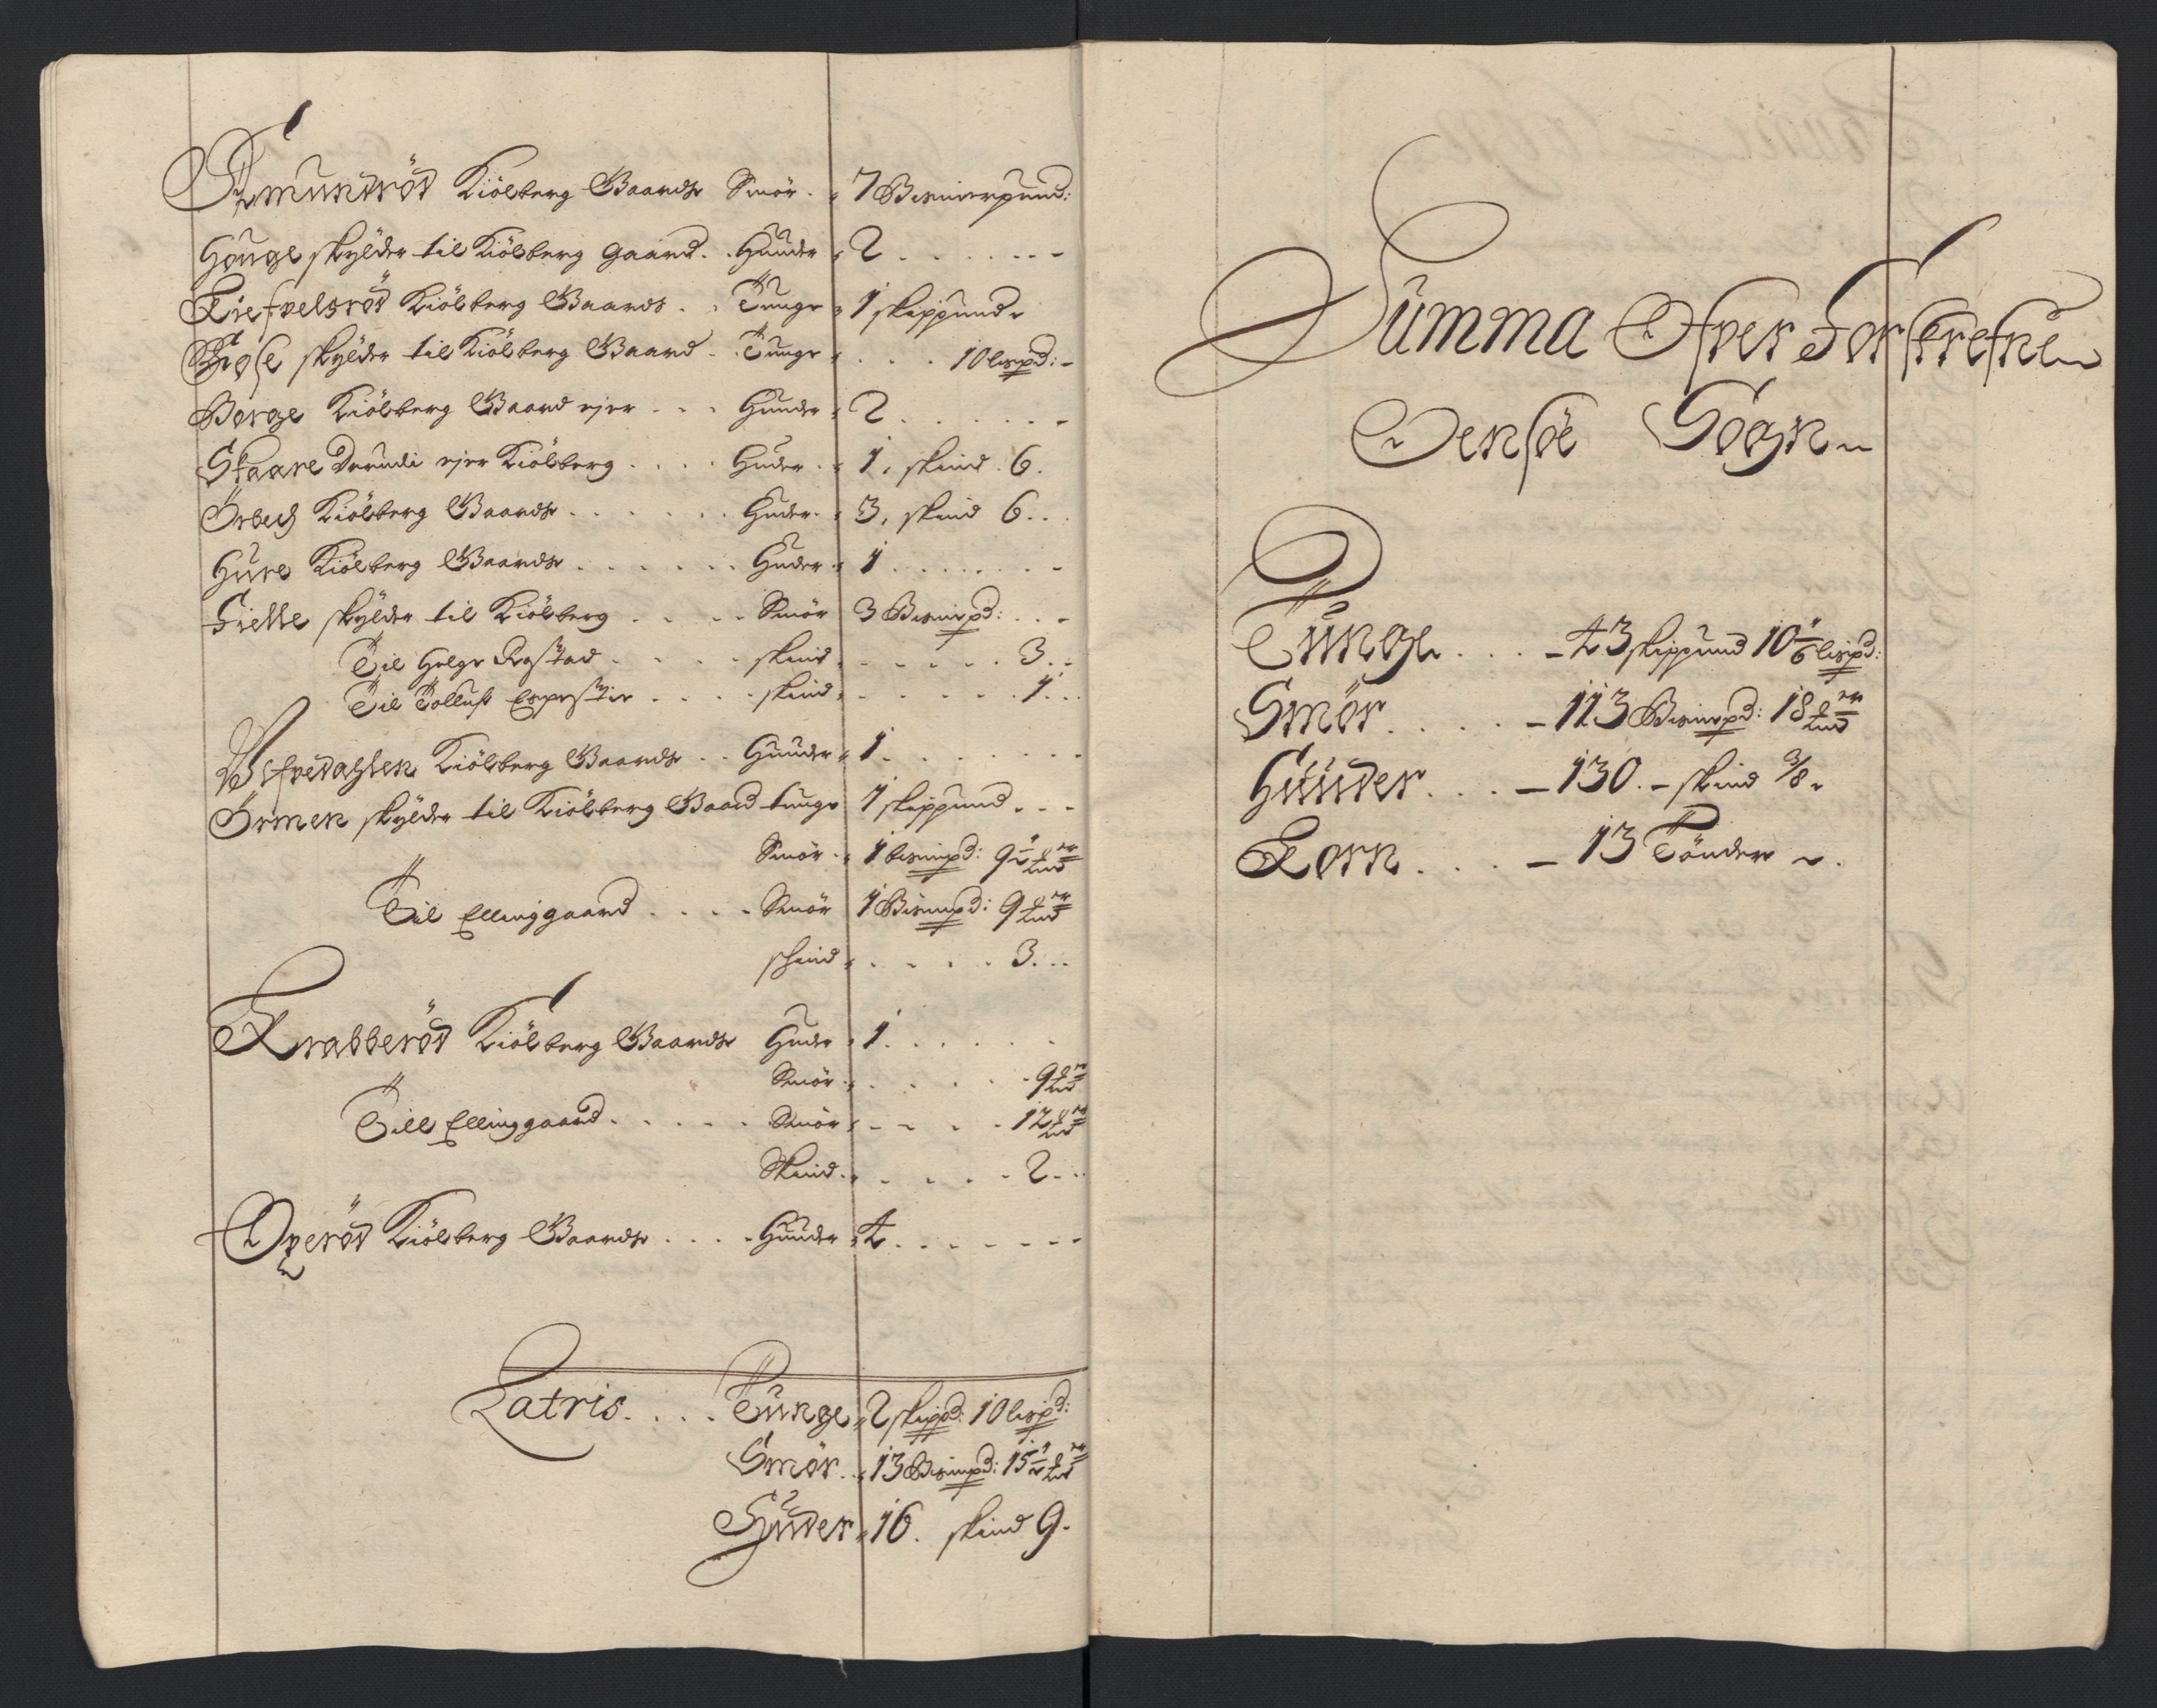 Amundrød Kiölberg Gaards Smör. 7 Bismerpund:
Houge skylder til Kiölberg gaard. Huuder 2
Kiefvelsrød Kiölberg Gaards Tunge 1 skippund
Røse skylder til Kiölberg Gaard Tunge 10 lispd:
Borge Kiölberg Gaard ejer Huuder 2
Skaare Derudi ejer Kiölberg Huder 1, skind 6.
Örbech Kiölberg Gaards Huder 3, skind 6
Hure Kiölberg Gaards Huder 1
Gielle skylder til Kiölberg Smör 3 Bismpd:
Til Helge Rostad skind 3
Til Tolluf skind 1
Kiölberg Gaards Huuder 1
Ormen skylder til Kiölberg Gaard tunge 1 skippund
Smör 1 bismpd: 9½
Til Ellinggaard Smör 1 Bismpd: 9
skind 3
Krabberød Kiölberg Gaards Huder 1
Smör 9
Till Ellinggaard Smör 12
Skind 2
Overød Kiölberg Gaards Huuder 4
Latris. Tunge 2 skippd: 10 lispd:
Smör 13 Bismpd: 15½
Huder 16. skind 9.
Summa Ofver Forskrefne
Oensøe Sogn
Tunge 43 skippund 10 1/6 lispd:
Smör 113 Bismpd: 18
Huuder 130. skind 3/8
Korn 13 Tönder